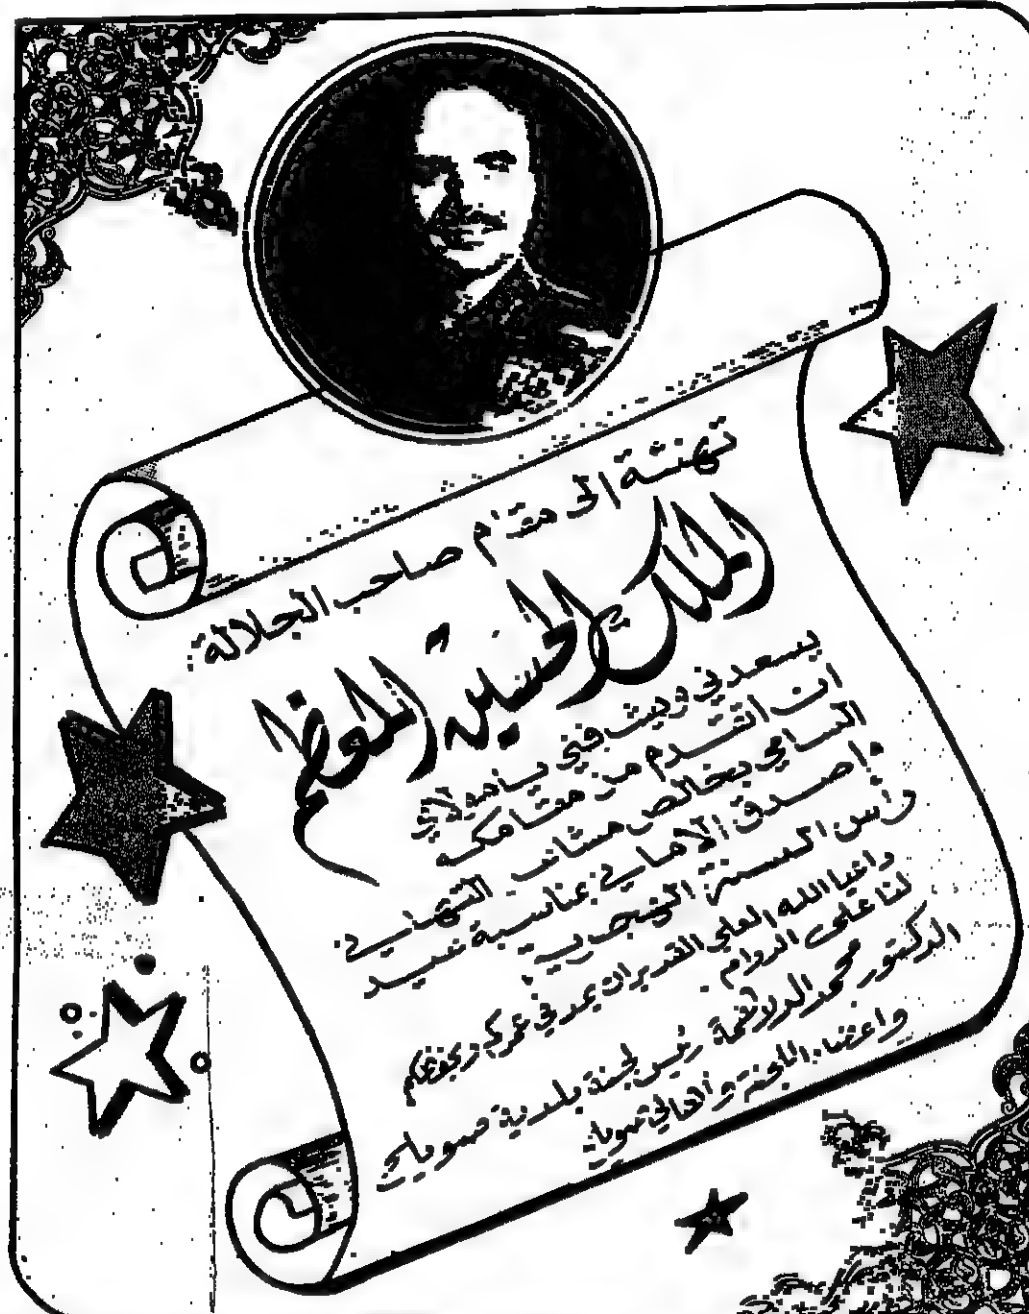 تهنئة إلى مقام صاحب الجلالة
الملك الحسين المعظم
يسعدني ويشرفني يا مولاي
ان اتقدم من مقامكم
السامي بخالص مشاعر التهاني
وأصدق الاماني بمناسبة عيد
رأس السنة الهجرية
داعيا الله العلي القدير ان يمد في عمركم ويحفظكم
لنا على الدوام.
الدكتور محمد رئيس لجنة بلدية صويلح
واعضاء اللجنة وأهالي صويلح